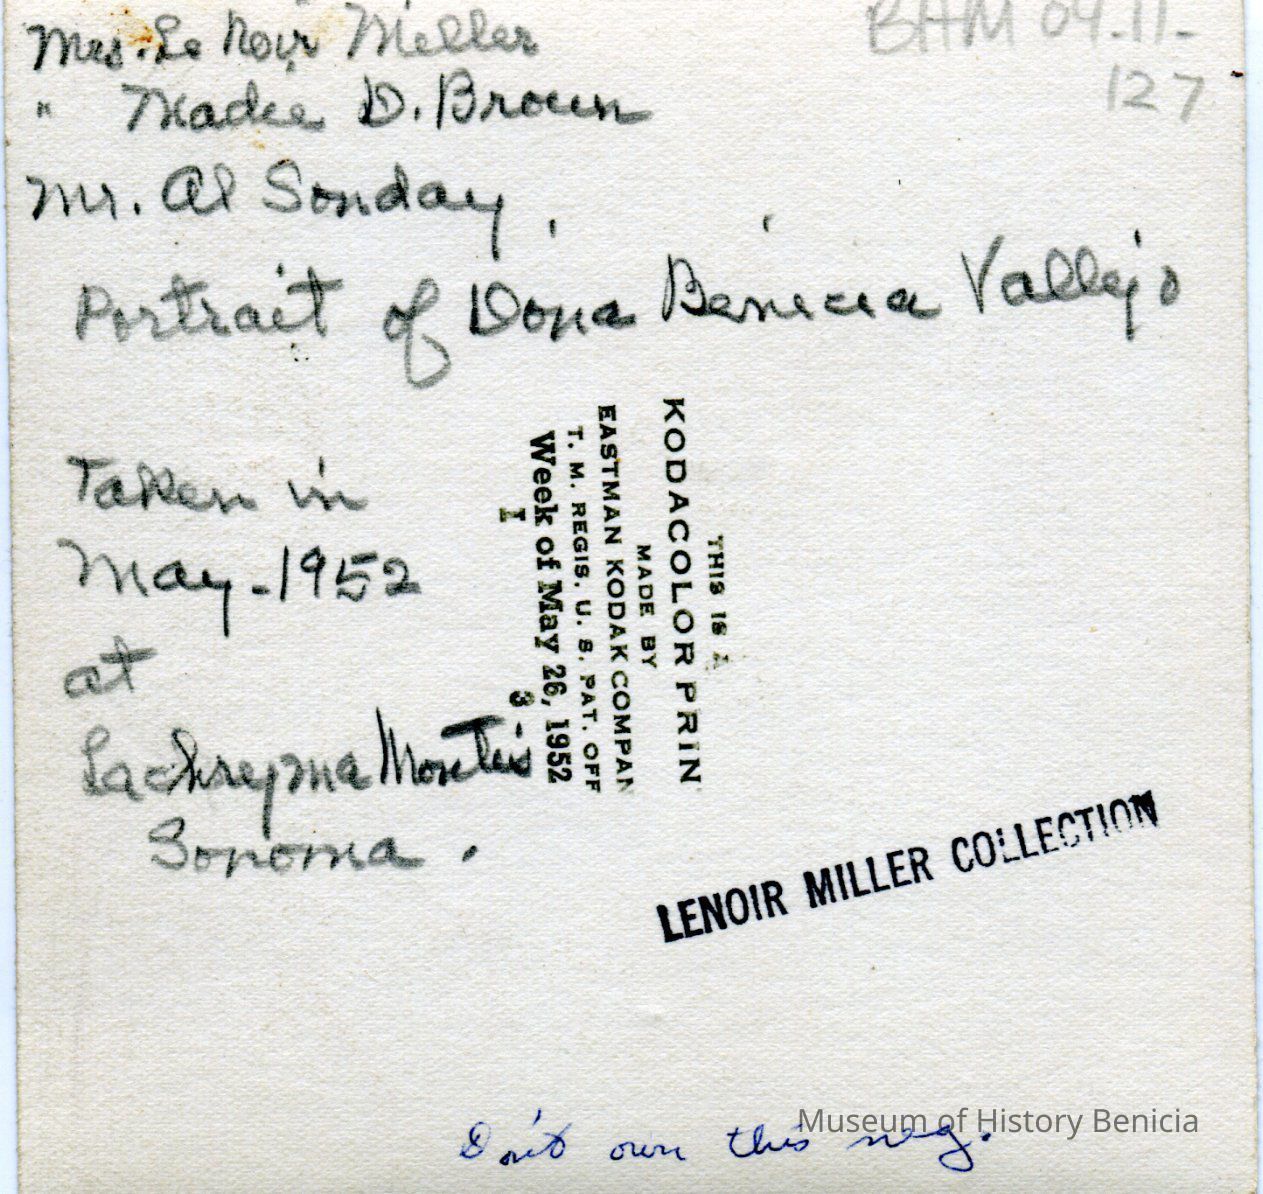 Mrs. Le Noir Miller
BHM 04.11.
127
" Madie D. Brown
Mr. Al Sonday
Portrait of Dona Benicia Vallejo
Taken in
May - 1952
at
Lachryma Montis
Sonoma.
THIS IS A
KODACOLOR PRIN
MADE BY
EASTMAN KODAK COMPAN
T. M. REGIS. U. S. PAT. OFF
Week of May 26, 1952
I 3
LENOIR MILLER COLLECTION
Museum of History Benicia
Don't own this neg.